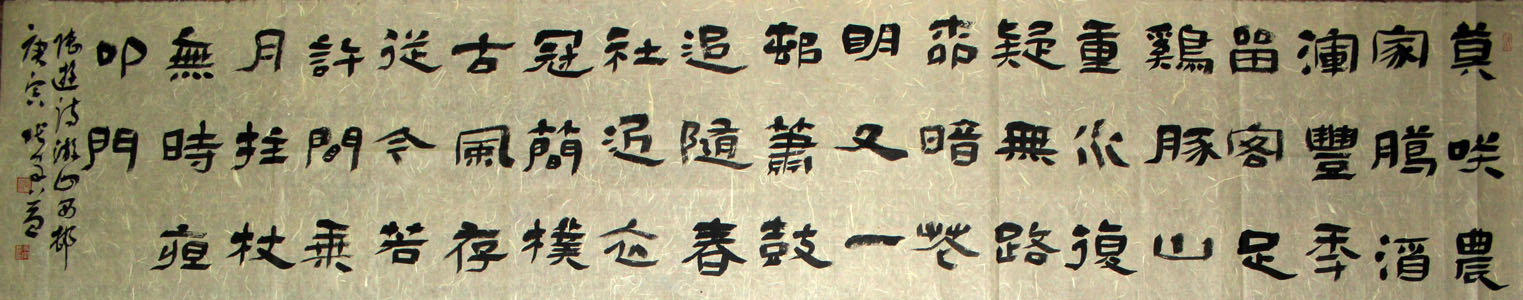 莫咲農
家臈酒
渾豐秊
留客足
鷄豚山
重水復
疑無路
桺暗花
明又一
邨蕭鼓
追隨春
社近衣
冠簡樸
古風存
從今若
許間乘
月拄杖
無時夜
叩門
陸遊詩游山西邨
庚寅